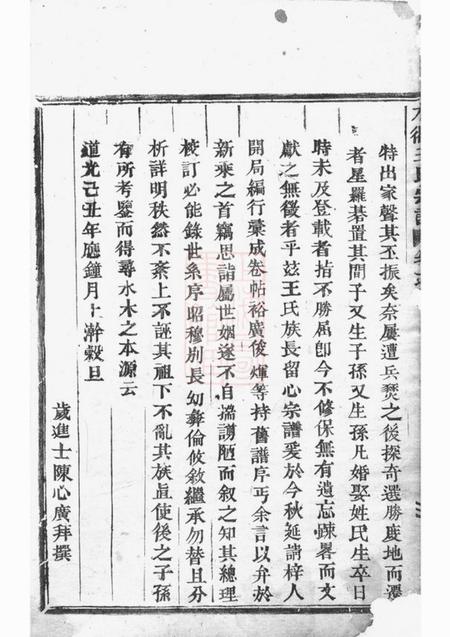 特出家聲其丕振矣奈屢遭兵燹之後探奇選勝度地而遷
者星羅碁置其間子又生子孫又生孫凡婚娶姓氏生卒日
時未及登載者指不勝屈卽今不修保無有遺忘疎畧而文
獻之無徵者乎玆王氏族長留心宗譜爰於今秋延請梓人
開局編行彙成卷帖裕廣俊煇等持舊譜序丐余言以弁於
新乘之首竊思諸屬世姻遂不自揣謭陋而叙之知其總理
校訂必能錄世系序昭穆別長幼彝倫攸敘繼承勿替且分
析詳明秩然不紊上不誣其祖下不亂其族眞使後之子孫
有所考鑒而得尋水木之本源云
道光己丑年應鐘月上澣穀旦
歲進士陳心廣拜撰